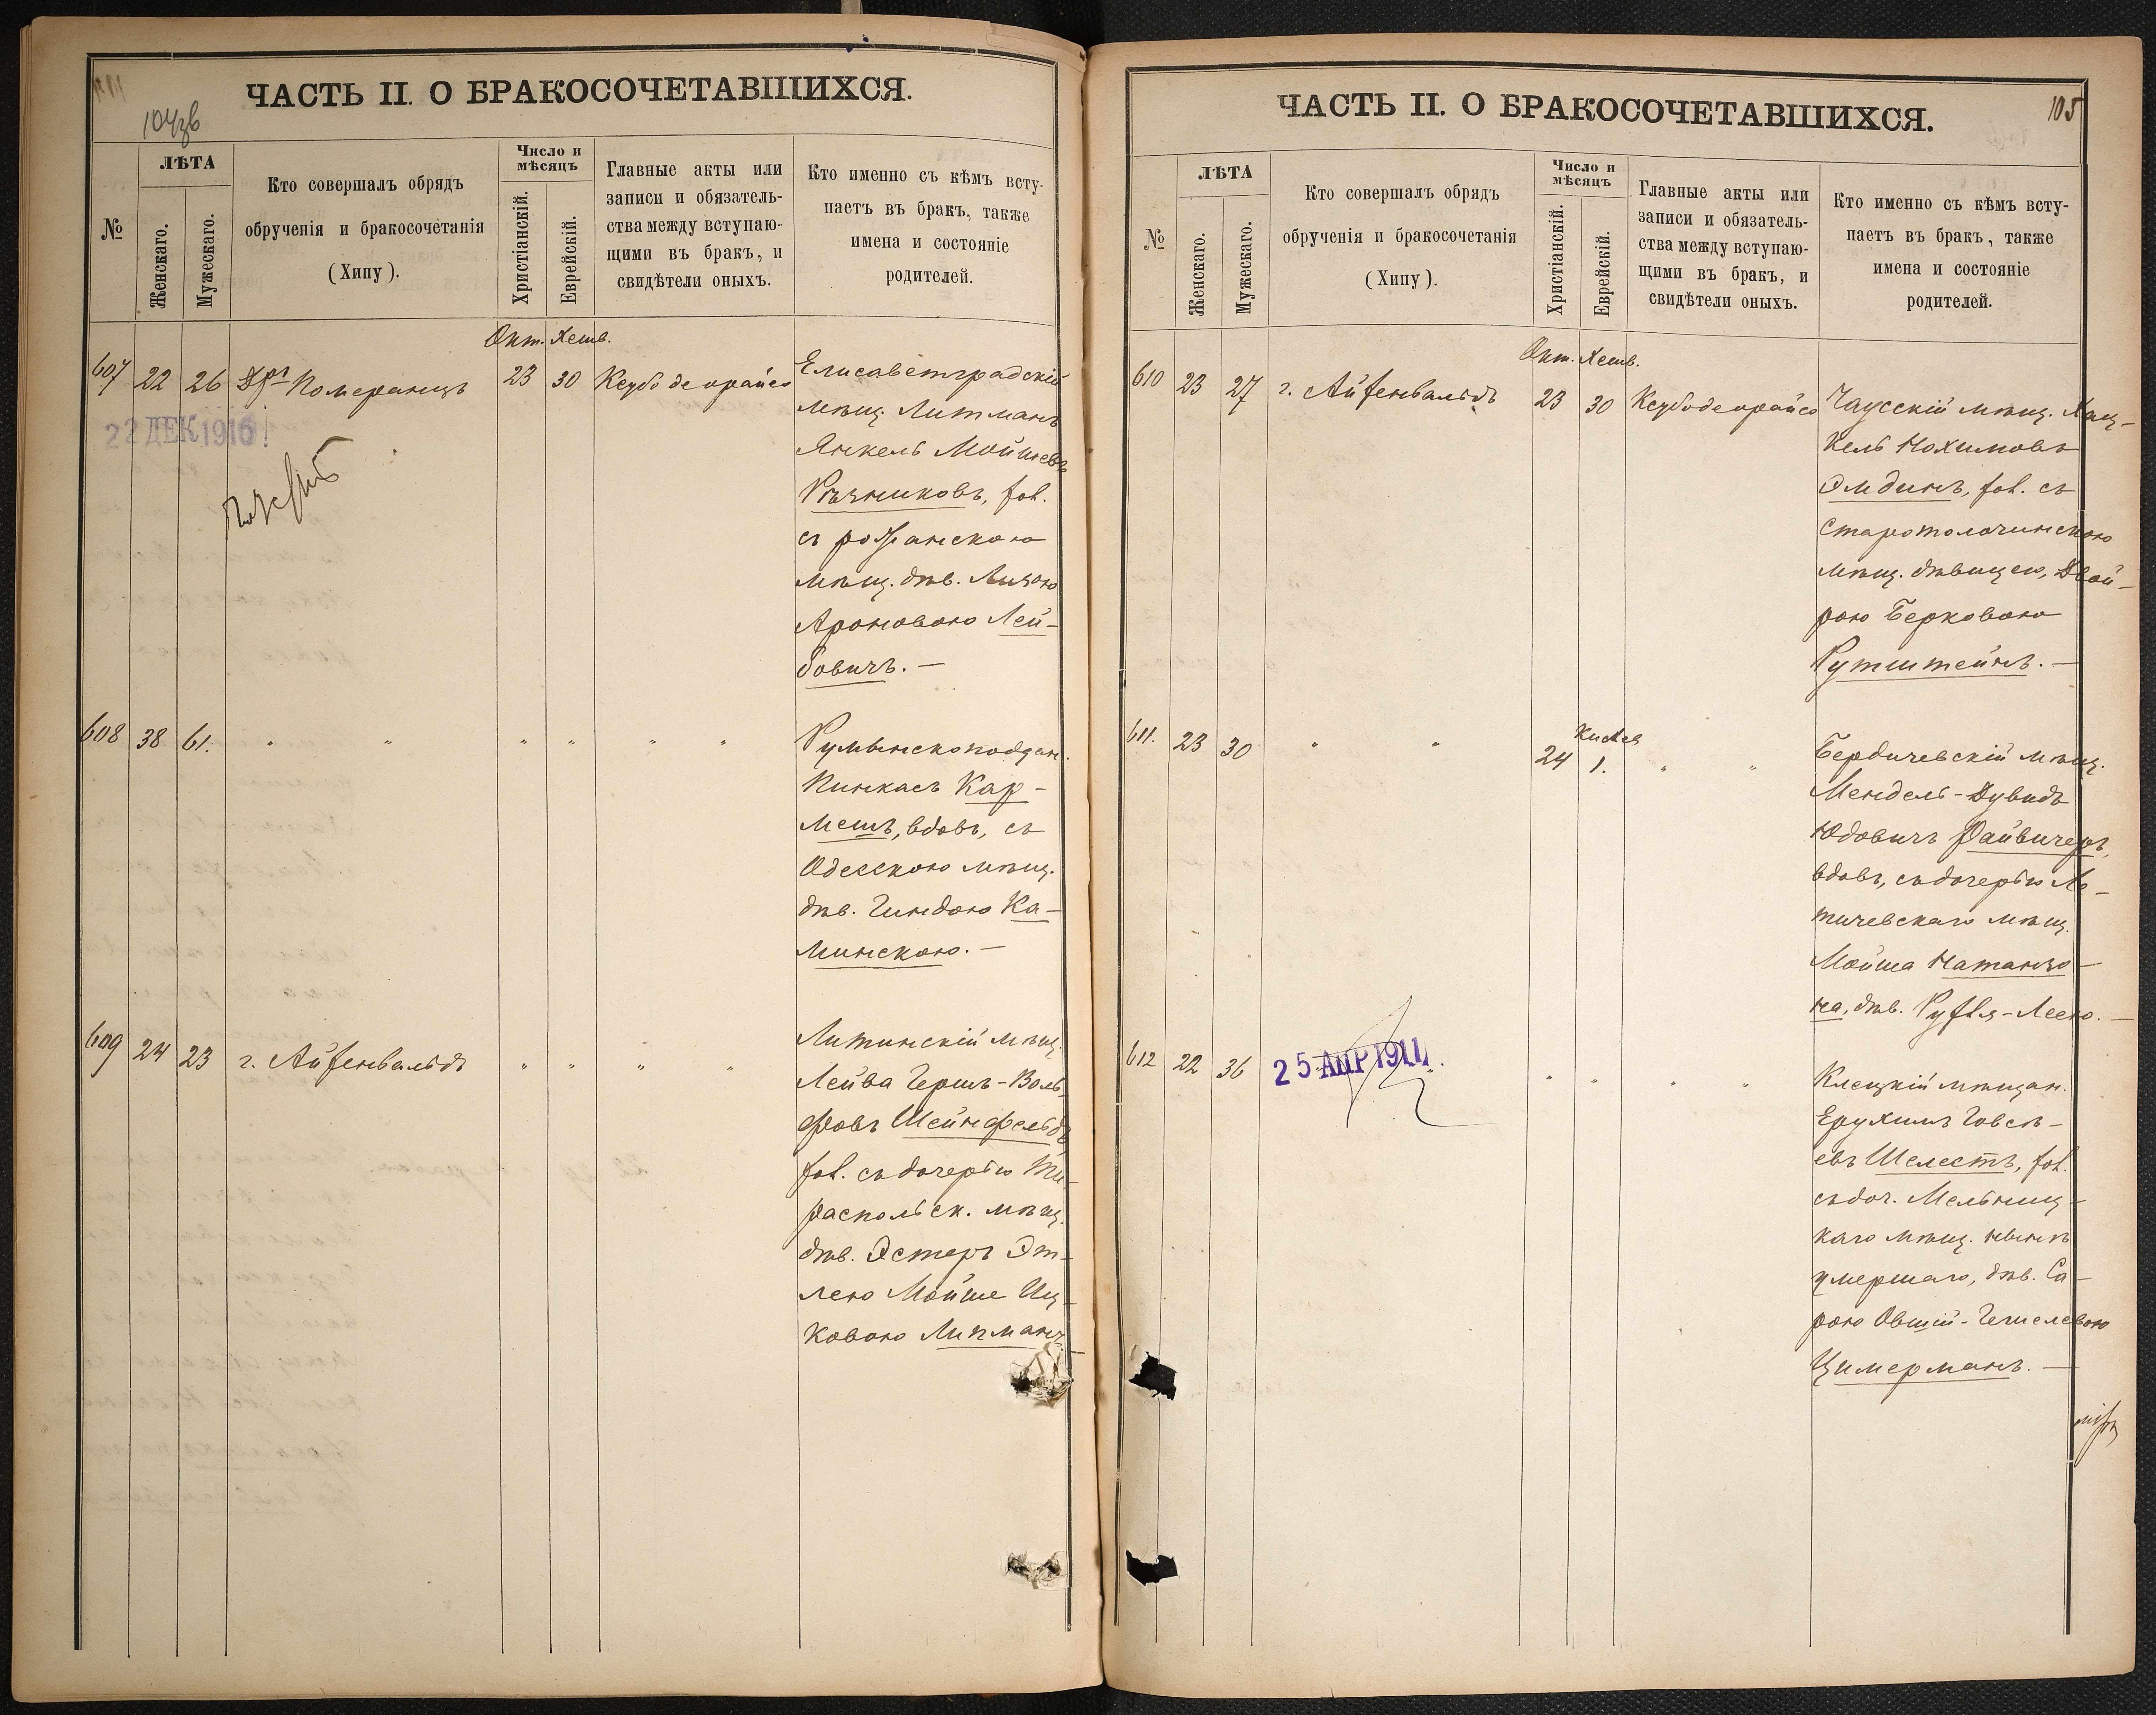 ЧАСТЬ II. О БРАКОСОЧЕТАВШИХСЯ.
104зв
№
ЛѢТА
Женскаго.
Мужескаго.
Кто совершалъ обрядъ
обрученія и бракосочетанія
(Хипу).
Число и
мѣсяцъ
Христіанскій.
Еврейскій.
Главные акты или
записи и обязатель-
ства между вступаю-
щими въ бракъ, и
свидѣтели оныхъ.
Кто именно съ кѣмъ всту-
паетъ въ бракъ, также
имена и состояніе
родителей.
Окт. Хешв.
607 22 26 Дръ Померанцъ 23 30 Ксубо деорайсо Елисаветградскій
мѣщ. Литманъ
22 ДЕК 1910
Янкель Мойшевъ
Рѣзниковъ, хол.
съ
мѣщ. дѣв. Лизою
Ароновою Лей-
бовичъ. —
608 38 61. " " " " " " Румынскоподдан.
Пинкасъ Кар-
мешъ, вдовъ, съ
Одесскою мѣщ.
дѣв. Гиндою Ка-
минскою. —
609 24 23 г. Айхенвальдъ " " " " Литинскій мѣщ.
Лейба Гершъ-Воль-
фовъ Шейнфельдъ,
хол. съ дочерью Ти-
распольск. мѣщ.
дѣв. Эстеръ Эт-
лею Мойше Иц-
ковою Липманъ —
ЧАСТЬ II. О БРАКОСОЧЕТАВШИХСЯ.
105
№
ЛѢТА
Женскаго.
Мужескаго.
Кто совершалъ обрядъ
обрученія и бракосочетанія
(Хипу).
Число и
мѣсяцъ
Христіанскій.
Еврейскій.
Главные акты или
записи и обязатель-
ства между вступаю-
щими въ бракъ, и
свидѣтели оныхъ.
Кто именно съ кѣмъ всту-
паетъ въ бракъ, также
имена и состояніе
родителей.
Окт. Хешв.
610 23 27 г. Айхенвальдъ 23 30 Ксубо деорайсо Чаусскій мѣщ. Хац-
кель Нохимовъ
Эмдинъ, хол. съ
Старотолочинскою
мѣщ. дѣвицею, Двой-
рою Берковою
Рутштейнъ. —
Кислев
611. 23 30 " " 24 1. " " Бердичевскій мѣщ.
Мендель-Дувидъ
Юдовичъ Райвичеръ,
вдовъ, съ дочерью Ле-
тичевскаго мѣщ.
Мойша Натанзо-
на, дѣв. Рухля-Леею. —
612 22 36 25 АПР 1911 " " " " Клецкій мѣщан.
Ерухимъ Говсѣ-
евъ Шелестъ, хол.
съ доч. Мельниц-
каго мѣщ. нынѣ
умершаго, дѣв. Са-
рою Овшій-Гешелевою
Цимерманъ. —